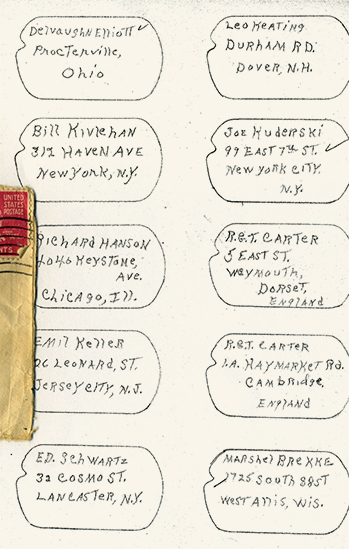 Delvaughn Elliott
Procterville,
Ohio
Leo Keating
Durham Rd.
Dover, N.H.
Bill Kivlehan
312 Haven Ave
New York, N.Y.
Joe Kuderski
99 East 7th St.
New York City,
N.Y.
UNITED
STATES
POSTAGE
NTS
Richard Hanson
4040 Keystone,
Ave.
Chicago, Ill.
R.G.T. Carter
5 East St.
Weymouth,
Dorset,
England
Emil Keller
26 Leonard, St.
Jersey City, N.J.
R.G.T. Carter
1.A. Haymarket Rd.
Cambridge,
England
Ed. Schwartz
32 Cosmo St.
Lancaster, N.Y.
Marshel Brekke
1725 South 88st
West Allis, Wis.